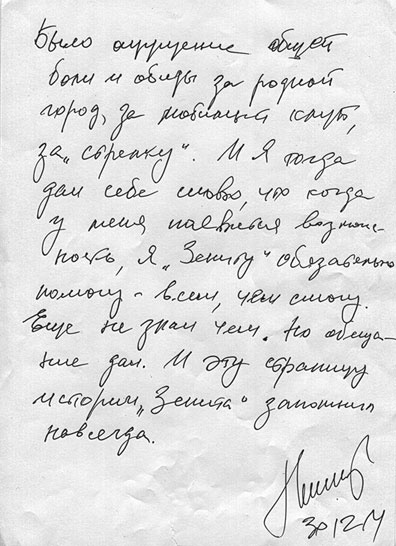 Было ощущение общей
боли и обиды за родной
город, за любимый клуб,
за „стрелку". И я тогда
дал себе слово, что когда
у меня появится возмож-
ность, я „Зениту" обязательно
помогу - всем, чем смогу.
Еще не знал чем. Но обеща-
ние дал. И эту страницу
истории „Зенита" запомнил
навсегда.
30/12/14